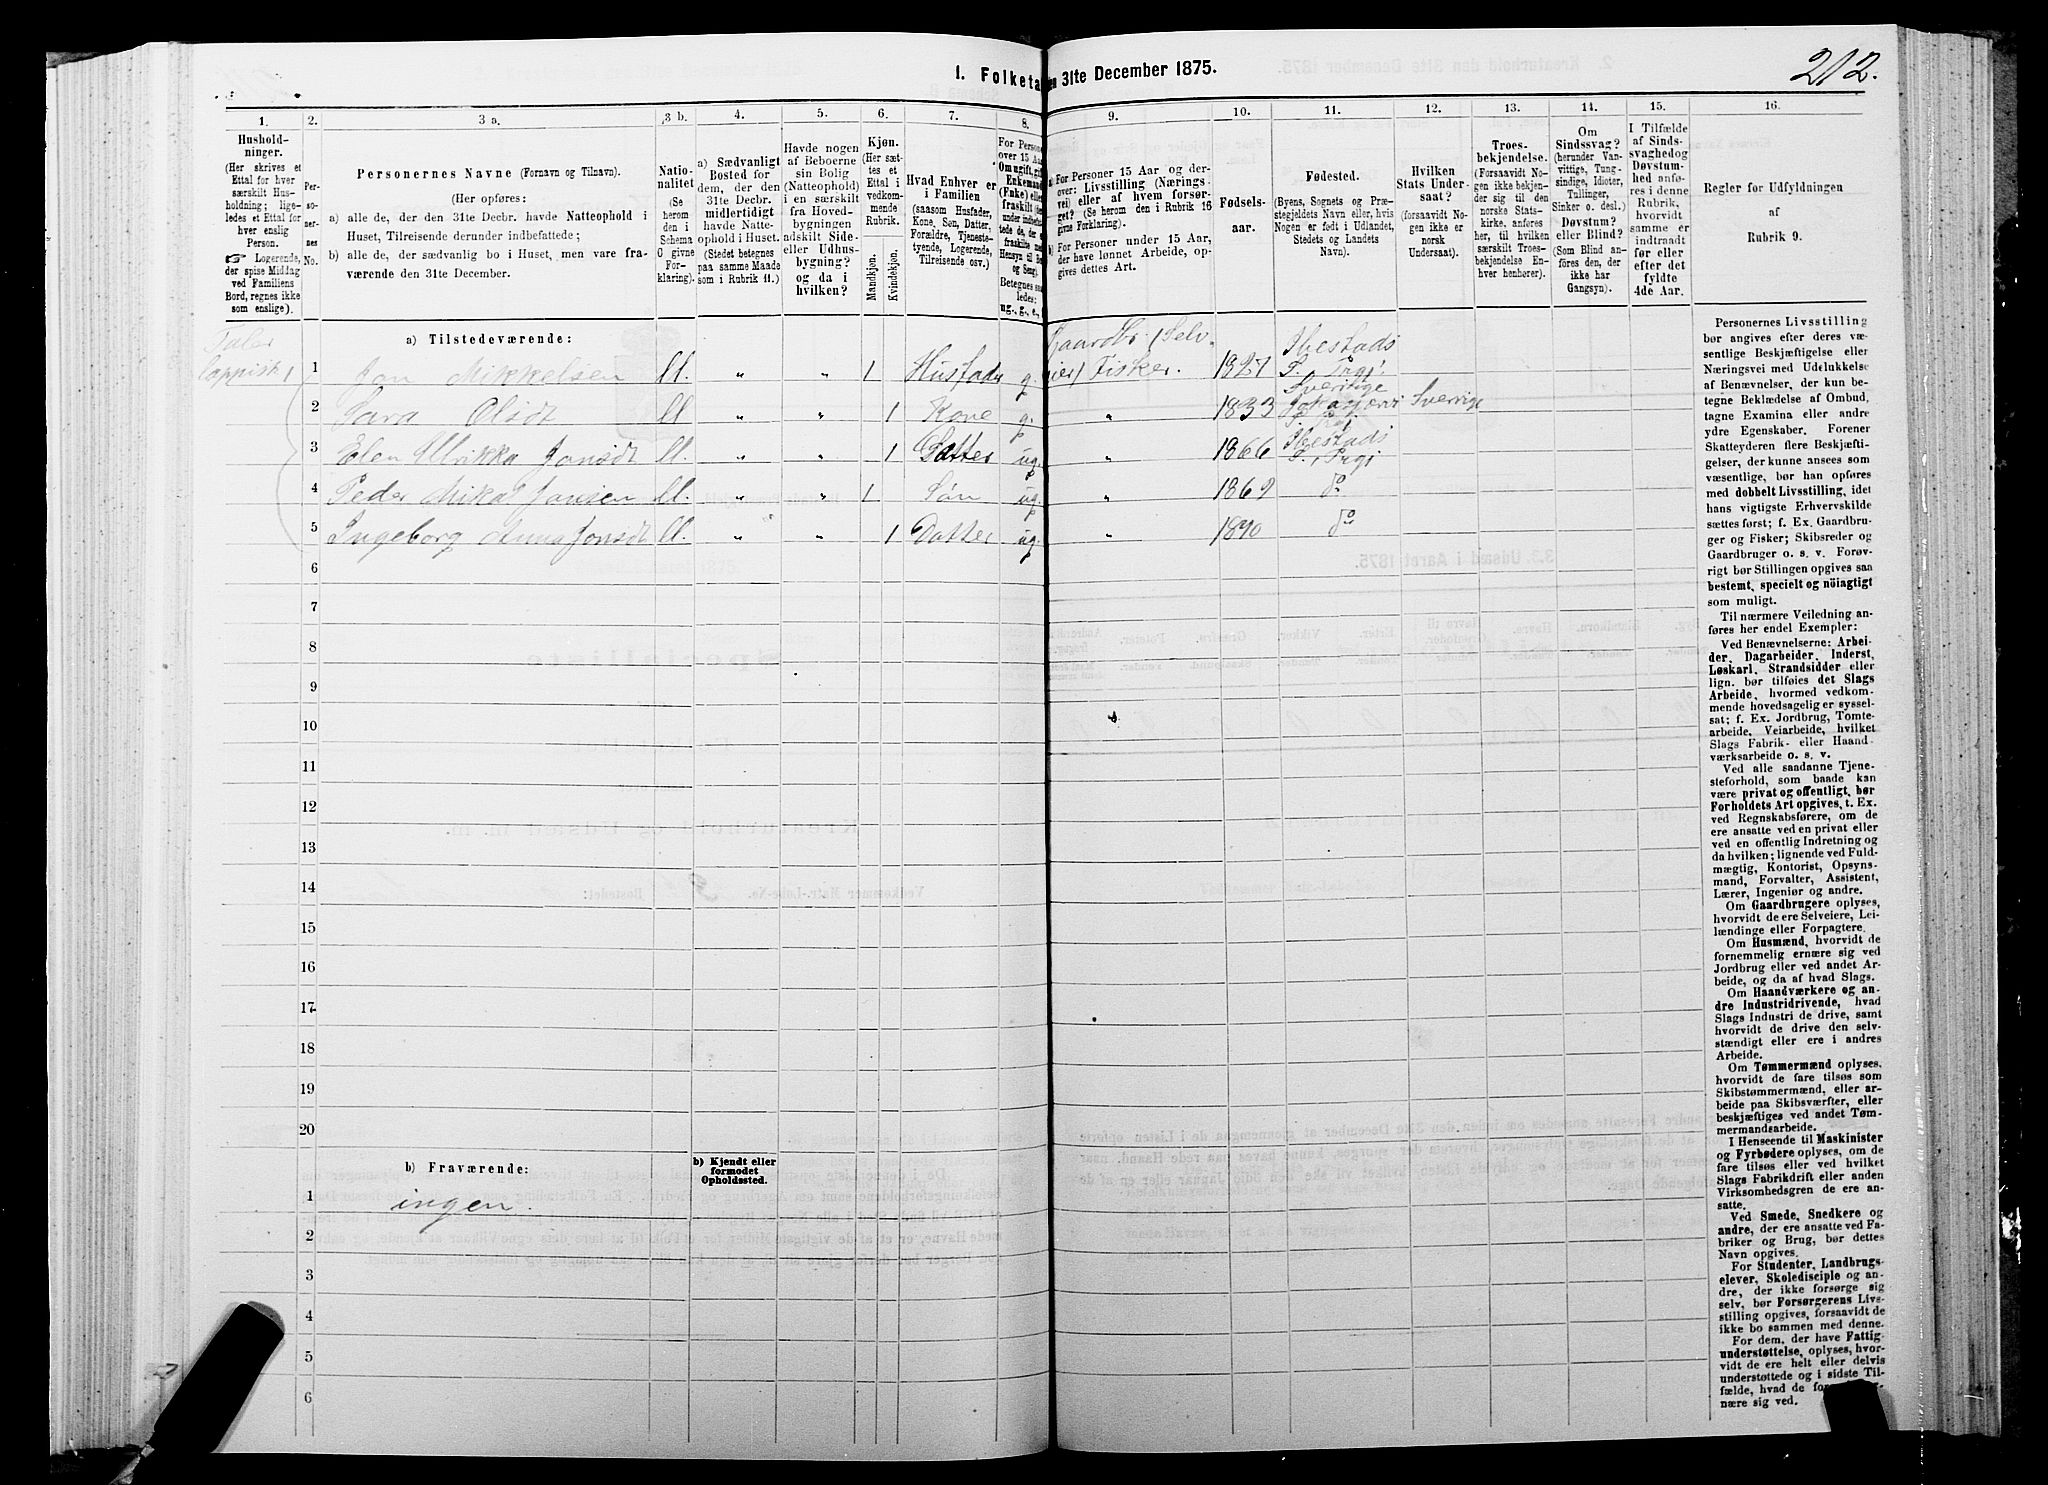 212.
1. Folketa
en 31te December 1875.
1.
2.
3 a.
3 b.
4.
5.
6.
7.
8.
9.
10.
11.
12.
13.
14.
15.
16.
Hushold-
ninger.
(Her skrives et
Ettal for hver
særskilt Hus-
holdning; lige-
ledes et Ettal for
hver enslig
Person.
☞ Logerende,
der spise Middag
ved Familiens
Bord, regnes ikke
som enslige).
Per-
so-
ner-
nes
No.
Personernes Navne (Fornavn og Tilnavn).
(Her opføres:
a) alle de, der den 31te Decbr. havde Natteophold i
Huset, Tilreisende derunder indbefattede;
b) alle de, der sædvanlig bo i Huset, men vare fra-
værende den 31te December).
Natio-
nalitet
(Se
herom
den i
Schema
C givne
For-
klaring).
a) Sædvanligt
Bosted for
dem, der den
31te Decbr.
midlertidigt
havde Natte-
ophold i Huset.
(Stedet betegnes
paa samme Maade
som i Rubrik 11.)
Havde nogen
af Beboerne
sin Bolig
(Natteophold)
i en særskilt
fra Hoved-
bygningen
adskilt Side-
eller Udhus-
bygning?
og da i
hvilken?
Kjøn.
(Her sæt-
tes et
Ettal i
vedkom-
mende
Rubrik.
Mandkjøn.
Kvindekjøn.
Hvad Enhver er
i Familien
(saasom Husfader,
Kone, Søn, Datter,
Forældre, Tjeneste-
tyende, Logerende,
Tilreisende osv.)
For Persone
over 15 Aar
Om ugift, gift
Enkemand
(Enke) eller
fraskilt
Betegnes saa-
ledes:
ug., g., e.,
a) For Personer 15 Aar og der-
over: Livsstilling (Nærings-
vei) eller af hvem forsør-
get? (Se herom den i Rubrik 16
givne Forklaring).
b) For Personer under 15 Aar,
der have lønnet Arbeide, op-
gives dettes Art.
Fødsels-
aar.
Fødested.
(Byens, Sognets og Præ-
stegjeldets Navn eller, hvis
Nogen er født i Udlandet,
Stedets og Landets
Navn).
Hvilken
Stats Under-
saat?
(forsaavidt No-
gen ikke er
norsk
Undersaat).
Troes-
bekjendelse.
(Forsaavidt No-
gen ikke bekjen-
der sig til den
norske Stats-
kirke, anføres
her, til hvilken
særskilt Troes-
bekjendelse En-
hver henhører).
Om
Sindssvag?
(herunder Van-
vittige, Tung-
sindige, Idioter,
Tullinger,
Sinker o. desl.)
Døvstum?
eller Blind?
(Som Blind an-
føres den, der
ikke har
Gangsyn).
I Tilfælde
af Sinds-
svaghed og
Døvstum-
hed anfø-
res i denne
Rubrik,
hvorvidt
samme er
indtraadt
før eller
efter det
fyldte
4de Aar.
Regler for Udfyldningen
af
Rubrik 9.
a) Tilstedeværende:
Taler
lappisk
1 1 Jon Mikkelsen " " 1 Husfader g. Gaardbr. (Selv- eier) Fisker. 1827 Ibestads S. Prgj.
2 Sara Olsdt " " 1 Kone g. " 1833 Sverige Sverrige
3 Elen Ulrikka Jonsdt " " 1 Datter ug. " 1866 Ibestads S., Prgj
4 Peder Mikal Jonsen " " 1 Søn ug. " 1869 do
5 Ingeborg Anna Jonsdt " " 1 Datter ug. " 1870 do
6
7
8
9
10
11
12
13
14
15
16
17
18
19
20
b) Fraværende:
b) Kjendt eller
formodet
Opholdssted.
1 ingen.
2
3
4
5
6
Personernes Livsstilling
bør angives efter deres væ-
sentlige Beskjæftigelse eller
Næringsvei med Udelukkelse
af Benævnelser, der kun be-
tegne Beklædelse af Ombud,
tagne Examina eller andre
ydre Egenskaber. Forener
Skatteyderen flere Beskjæfti-
gelser, der kunne ansees som
væsentlige, bør han opføres
med dobbelt Livsstilling, idet
hans vigtigste Erhvervskilde
sættes først; f. Ex. Gaardbru-
ger og Fisker; Skibsreder og
Gaardbruger o. s. v. Forøv-
rigt bør Stillingen opgives saa
bestemt, specielt og nöiagtigt
som muligt.
Til nærmere Veiledning an-
føres her endel Exempler:
Ved Benævnelserne: Arbei-
der, Dagarbeider, Inderst,
Løskarl, Strandsidder eller
lign. bør tilføies det Slags
Arbeide, hvormed vedkom-
mende hovedsagelig er syssel-
sat; f. Ex. Jordbrug, Tomte-
arbeide, Veiarbeide, hvilket
Slags Fabrik- eller Haand-
værksarbeide o. s. v.
Ved alle saadanne Tjene-
steforhold, som baade kan
være privat og offentligt, bør
Forholdets Art opgives, t. Ex.
ved Regnskabsførere, om de
ere ansatte ved en privat eller
ved en offentlig Indretning og
da hvilken; lignende ved Fuld-
mægtig, Kontorist, Opsyns-
mand, Forvalter, Assistent,
Lærer, Ingeniør og andre.
Om Gaardbrugere oplyses,
hvorvidt de ere Selveiere, Lei-
lændinge eller Forpagtere.
Om Husmænd, hvorvidt de
fornemmelig ernære sig ved
Jordbrug eller ved andet Ar-
beide, og da af hvad Slags.
Om Haandværkere og an-
dre Industridrivende, hvad
Slags Industri de drive, samt
hvorvidt de drive den selv-
stændigt eller ere i andres
Arbeide.
Om Tømmermænd oplyses,
hvorvidt de fare tilsøs som
Skibstømmermænd, eller ar-
beide paa Skibsværfter, eller
beskjæftiges ved andet Tøm-
mermandsarbeide.
I Henseende til Maskinister
og Fyrbødere oplyses, om de
fare tilsøs eller ved hvilket
Slags Fabrikdrift eller anden
Virksomhedsgren de ere an-
satte.
Ved Smede, Snedkere og
andre, der ere ansatte ved Fa-
briker og Brug, bør dettes
Navn opgives.
For Studenter, Landbrugs-
elever, Skoledisciple og an-
dre, der ikke forsørge sig
selv, bør Forsørgerens Livs-
stilling opgives, forsaavidt de
ikke bo sammen med denne.
For dem, der have Fattig-
understøttelse, oplyses, hvor-
vidt de ere helt eller delvis
understøttede og i sidste Til-
fælde, hvad de
nære sig ved.